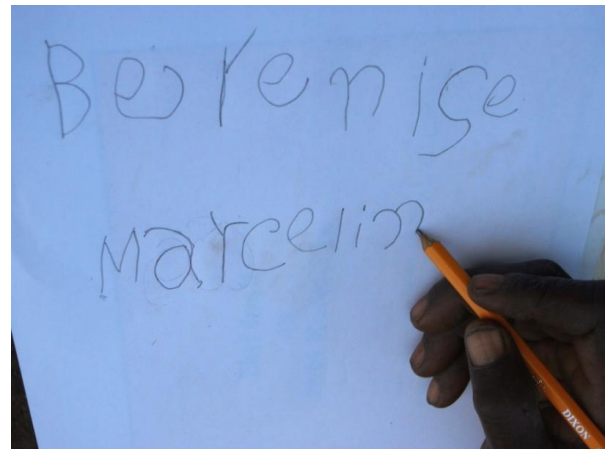 Berenise
Marcelin
DIXON